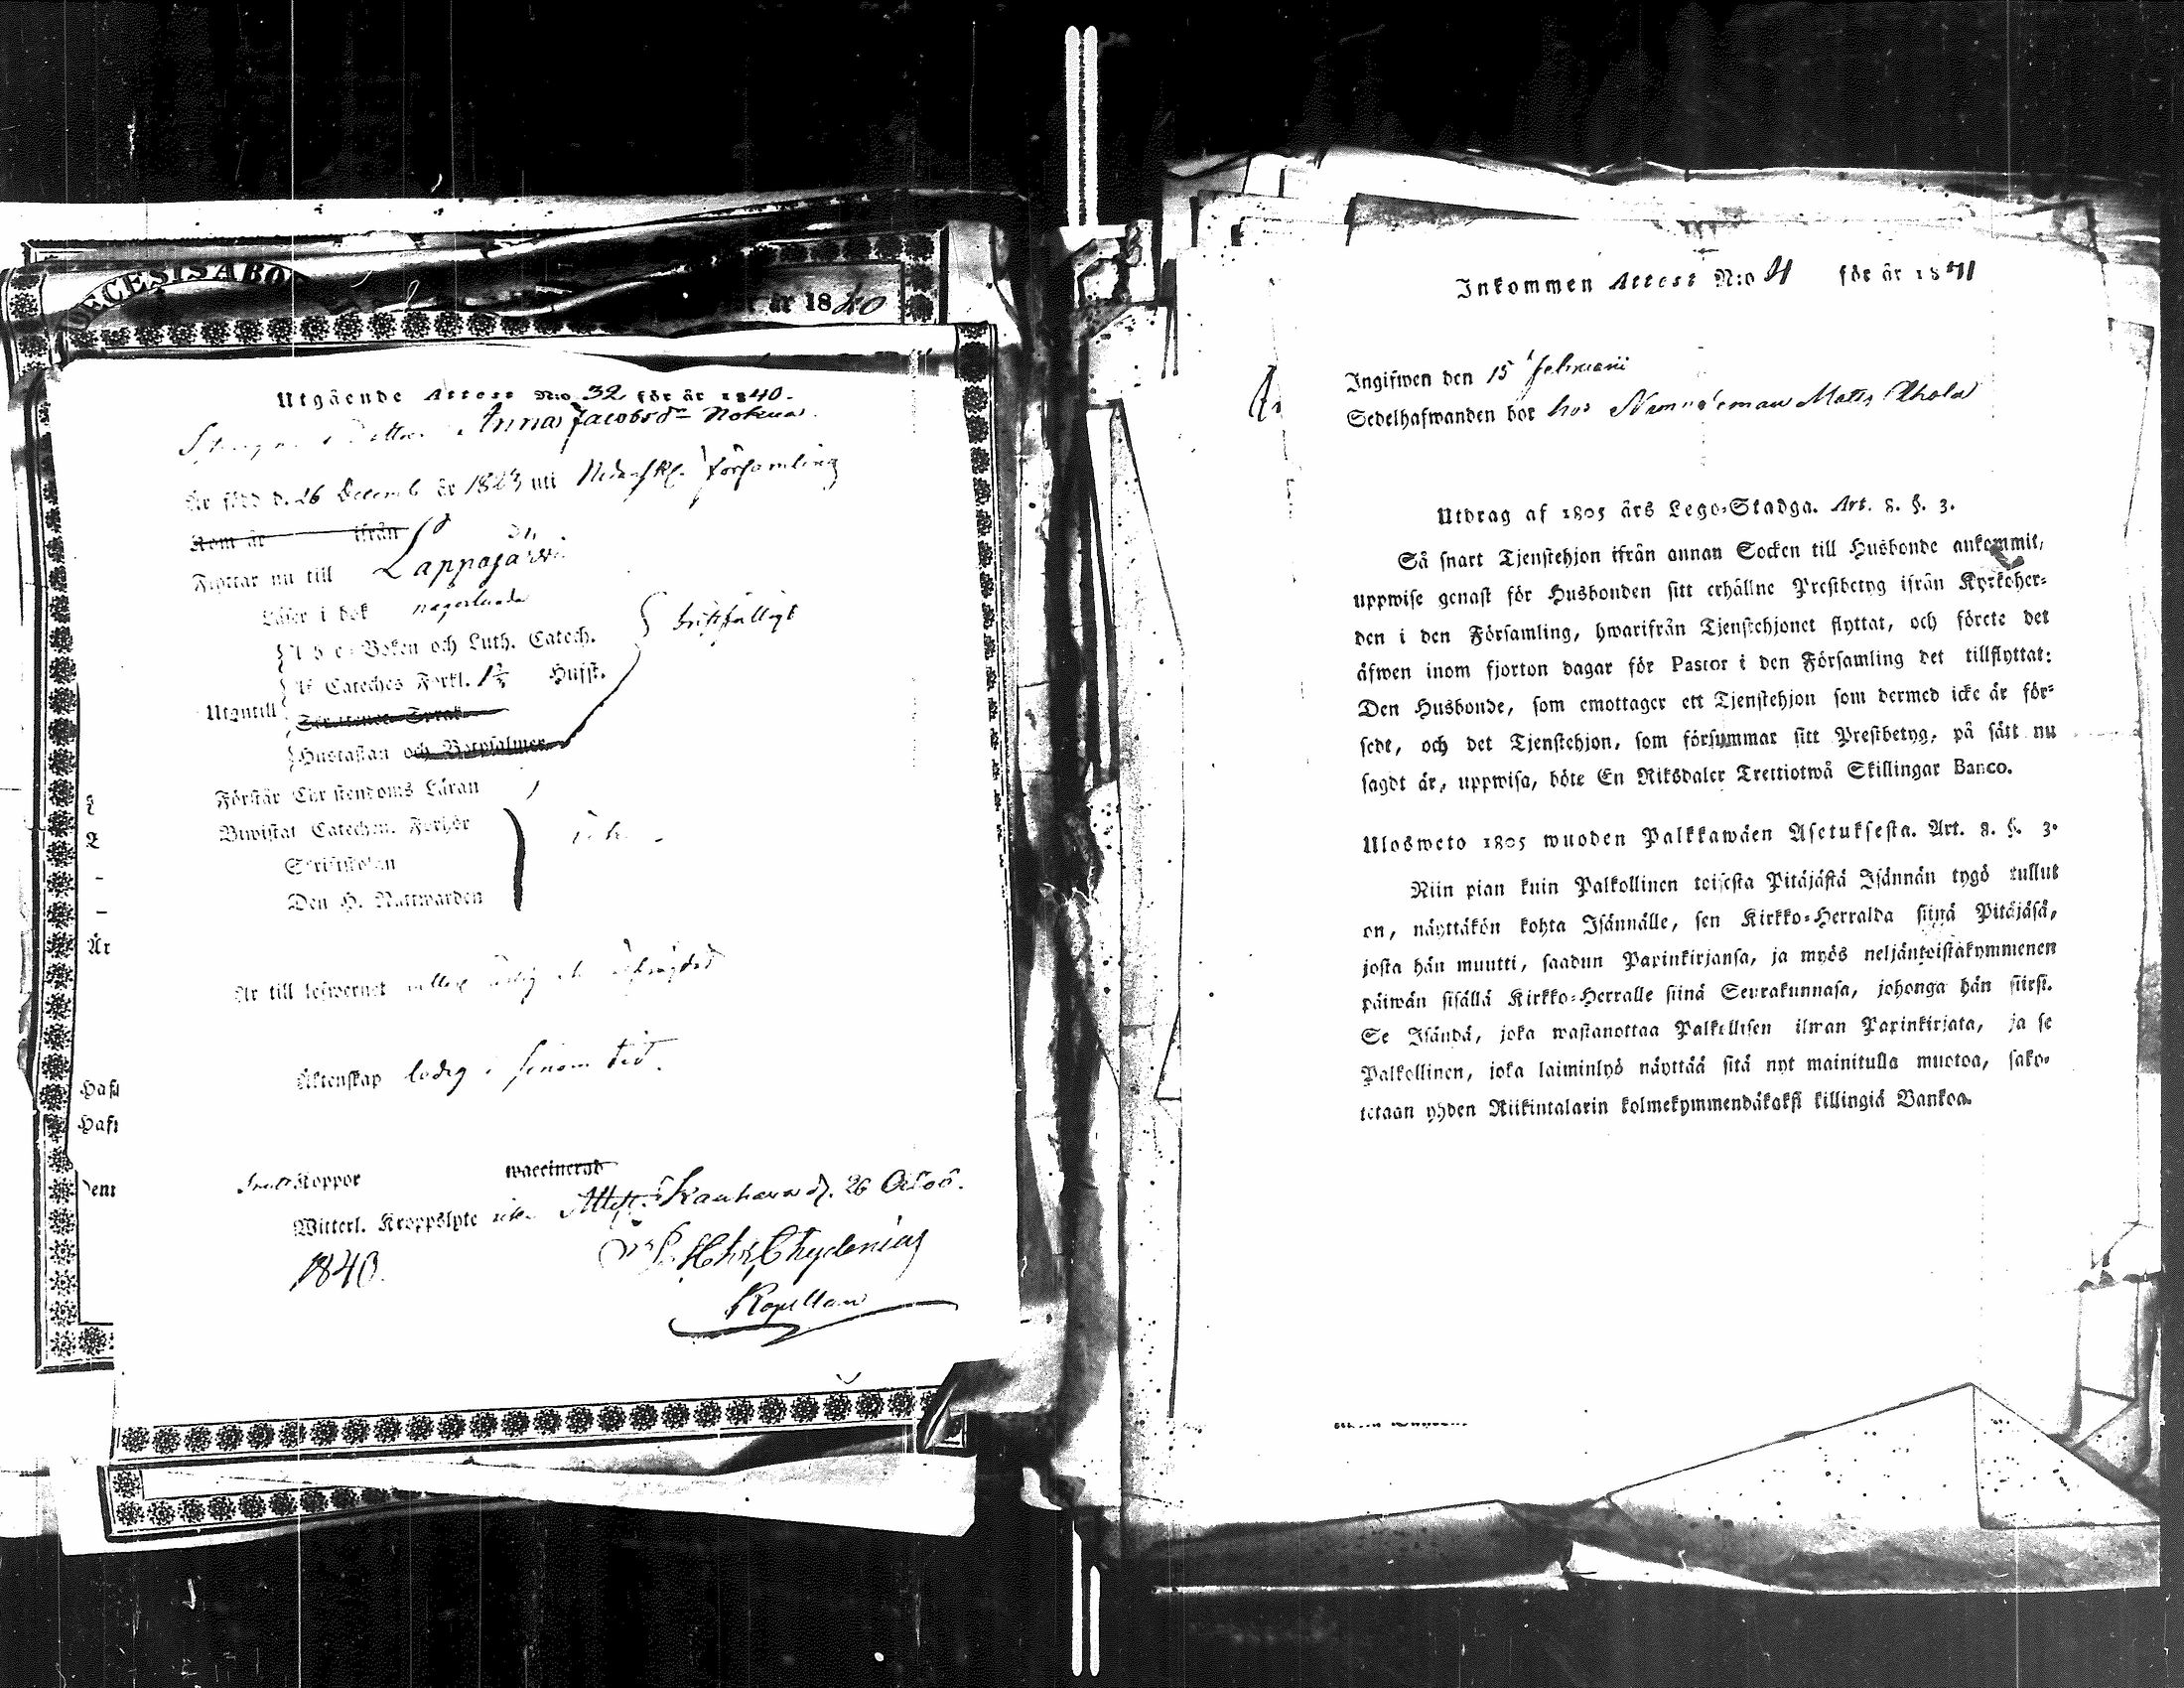 år 1840
Utgående Attest N:o 32 för år 1840.
Anna Jacobsd:r Nokua
Är född d. 26 Decemb år 1823 uti församling
Kom år ifrån
Flyttar nu till Lappajärvi
Läser i bok någorlunda
A b c-Boken och Luth. Catech.
Af Cateches Förkl. 1 2/3 Hufst.
bristfälligt
Utantill
Hustaflan och Botpsalmer
Förstår Christendoms Läran
Biwistat Catechm. Förhör
Scriftskolan
Den H. Nattwarden
Är till lefwernet
Äktenskap ledig i sinom tid.
Koppor waccinerad
Witterl. Kroppslyte Attest. Kauhava d. 26 Octob.
1840.
Chydenius
Kapellan
Är
Inkommen Attest N:o 4 för år 1841
Ingifwen den 15 Februarii
Sedelhafwanden bor hos Nämndeman Matts
Utdrag af 1805 års Lego-Stadga. Art. 8. §. 3.
Så snart Tjenstehjon ifrån annan Socken till Husbonde ankommit,
uppwise genast för Husbonden sitt erhållne Prestbetyg ifrån Kyrkoher-
den i den Församling, hwarifrån Tjenstehjonet flyttat, och förete det
äfwen inom fjorton dagar för Pastor i den Församling det tillflyttat:
Den Husbonde, som emottager ett Tjenstehjon som dermed icke är för-
sedt, och det Tjenstehjon, som försummar sitt Prestbetyg, på sätt nu
sagdt är, uppwisa, böte En Riksdaler Trettiotwå Skillingar Banco.
Ulosweto 1805 wuoden Palkkawäen Asetuksesta. Art. 8. §. 3.
Niin pian kuin Palkollinen toisesta Pitäjästä Isännän tygö tullut
on, näyttäkön kohta Isännälle, sen Kirkko-Herralda siinä Pitäjäsä,
josta hän muutti, saadun Papinkirjansa, ja myös neljäntoistakymmenen
päiwän sisällä Kirkko-Herralle siinä Seurakunnasa, johonga hän siirsi.
Se Isändä, joka wastanottaa Palkollisen ilman Papinkirjata, ja se
Palkollinen, joka laiminlyö näyttää sitä nyt mainitulla muotoa, sako-
tetaan yhden Riikintalarin kolmekymmendäkaksi killingiä Bankoa.